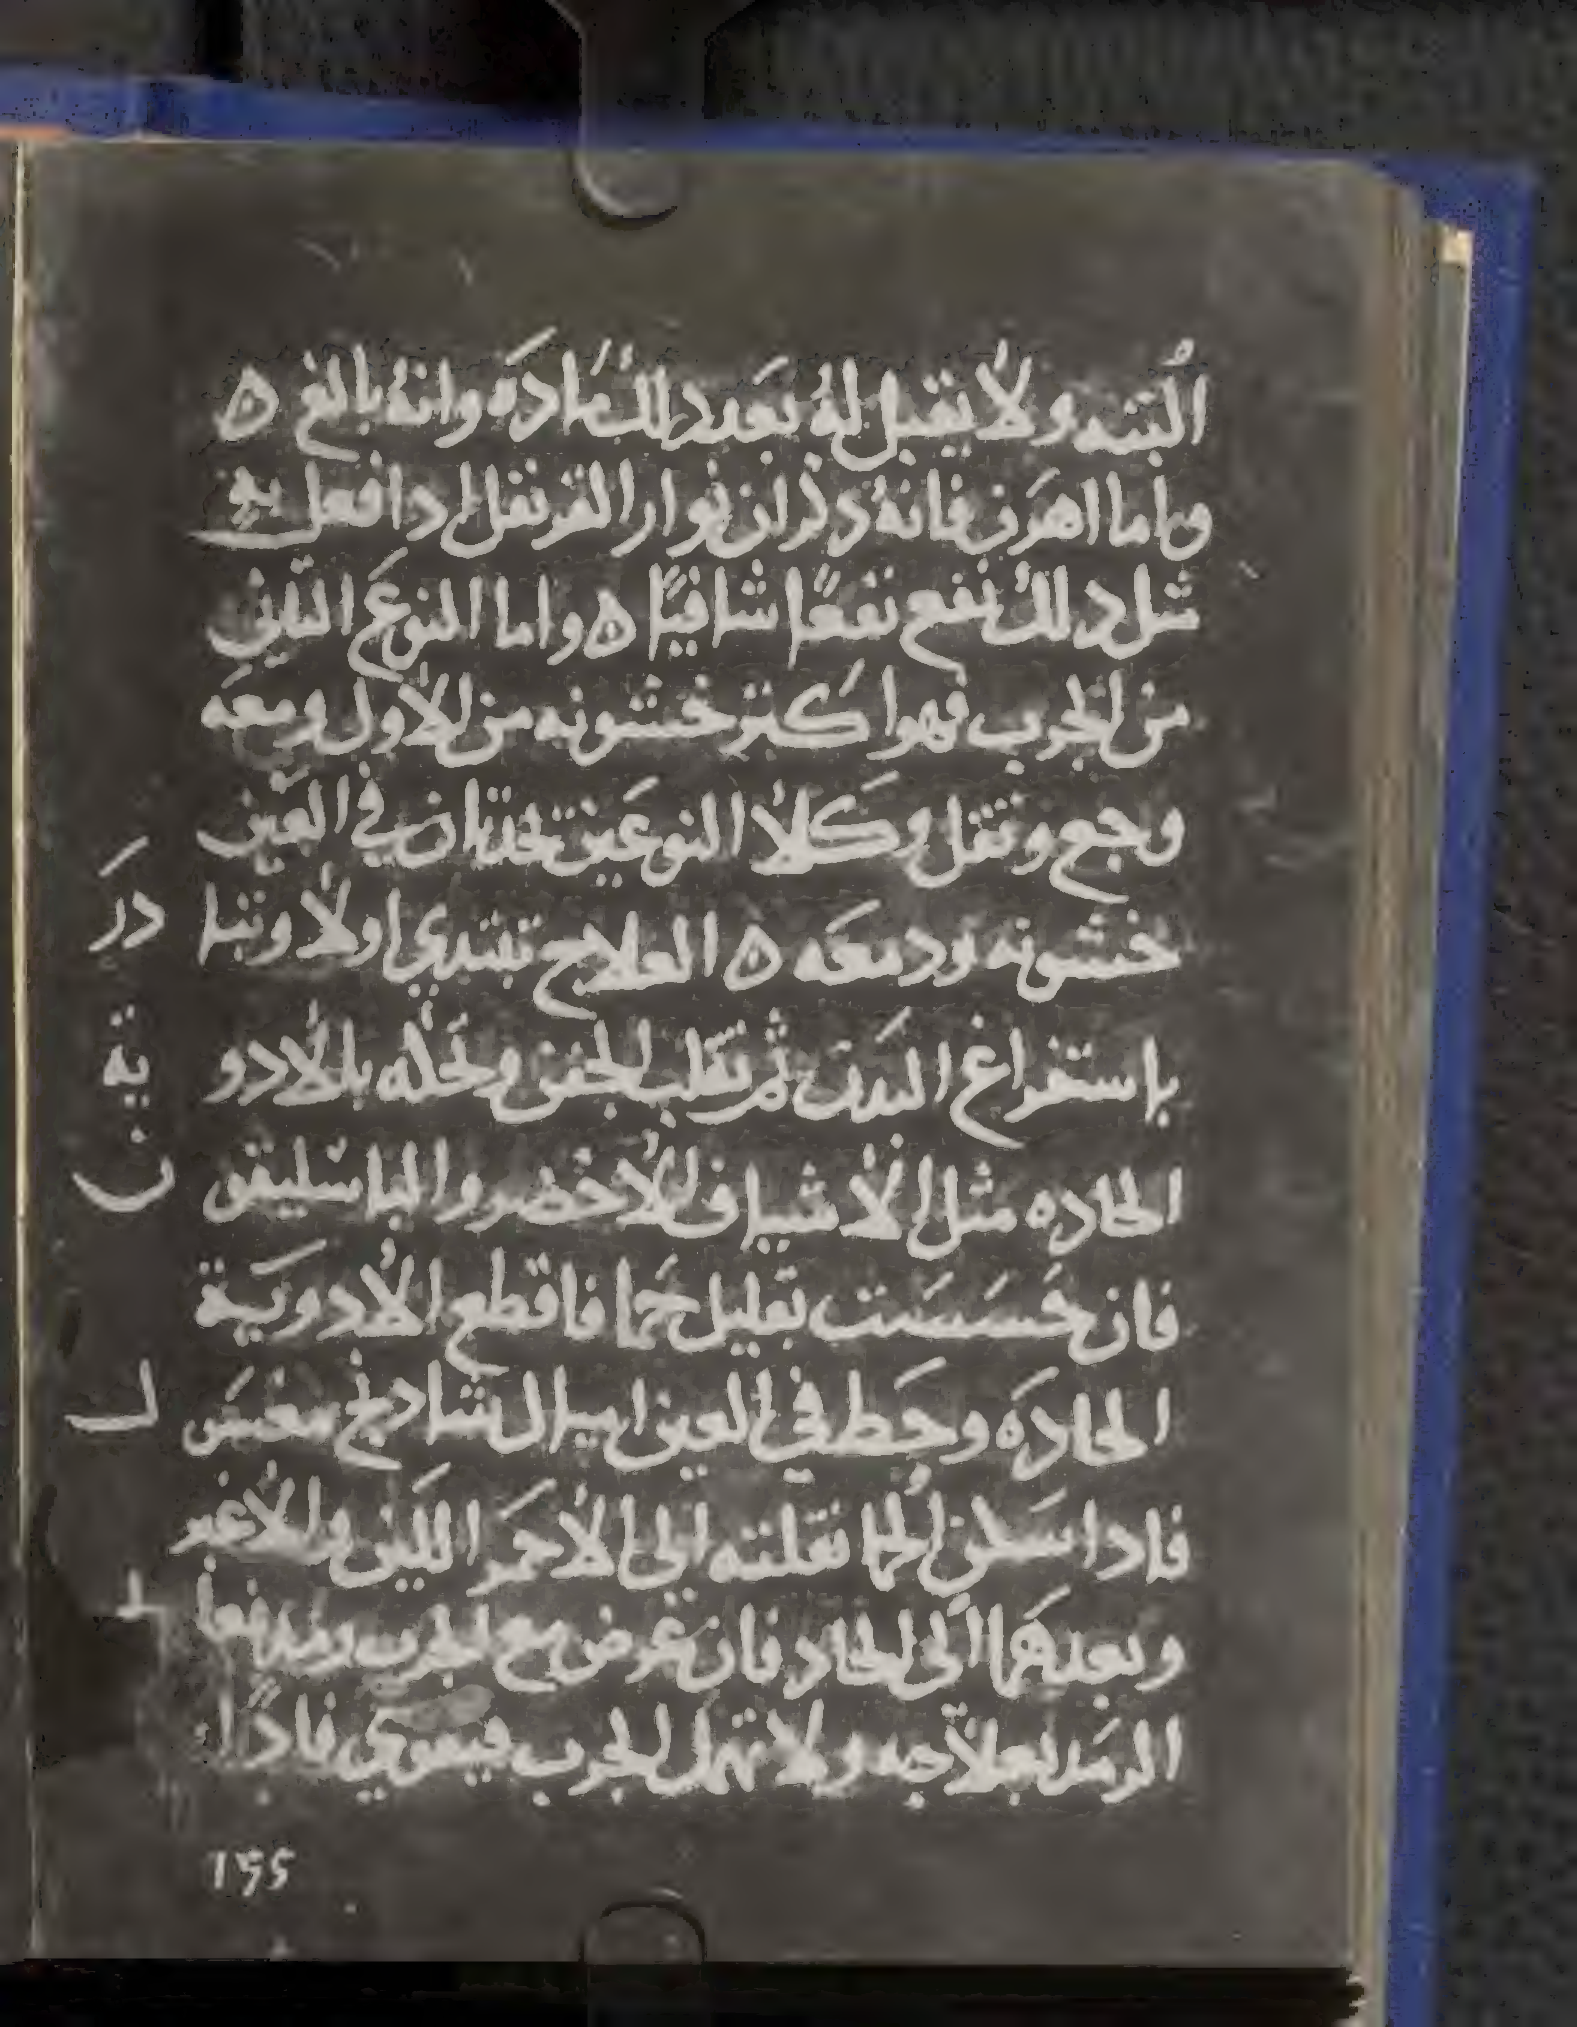 البته ولا يقبل له بعد ذلك ماده وانه بالغ ه
واما اهرن فانه ذكر ان نوار القرنفل اذا فعل به
مثل ذلك نفع نفعًا شافيًا ه واما النوع الثاني
من الجرب فهو اكثر خشونه من الاول ومعه
وجع وثقل وكلا النوعين تحدثان في العين
خشونه ودمعه ه العلاج تبتدي اولا وتبادر
باستفراغ البدن ثم تقلب الجفن وتحكه بالادوية
الحاده مثل الاشياف الاخضر والباسليقون
فان حسست بقليل حما فاقطع الادوية
الحادَه وحط في العين اميال شادنج مغسَل
فادا سكن الحما نقلته الى الاحمر اللين والاغبر
وبعدهما الى الحاد فان عرض مع الجرب رمد فعا
الرمد بعلاجه ولا تهمل الجرب فيقوي فادا